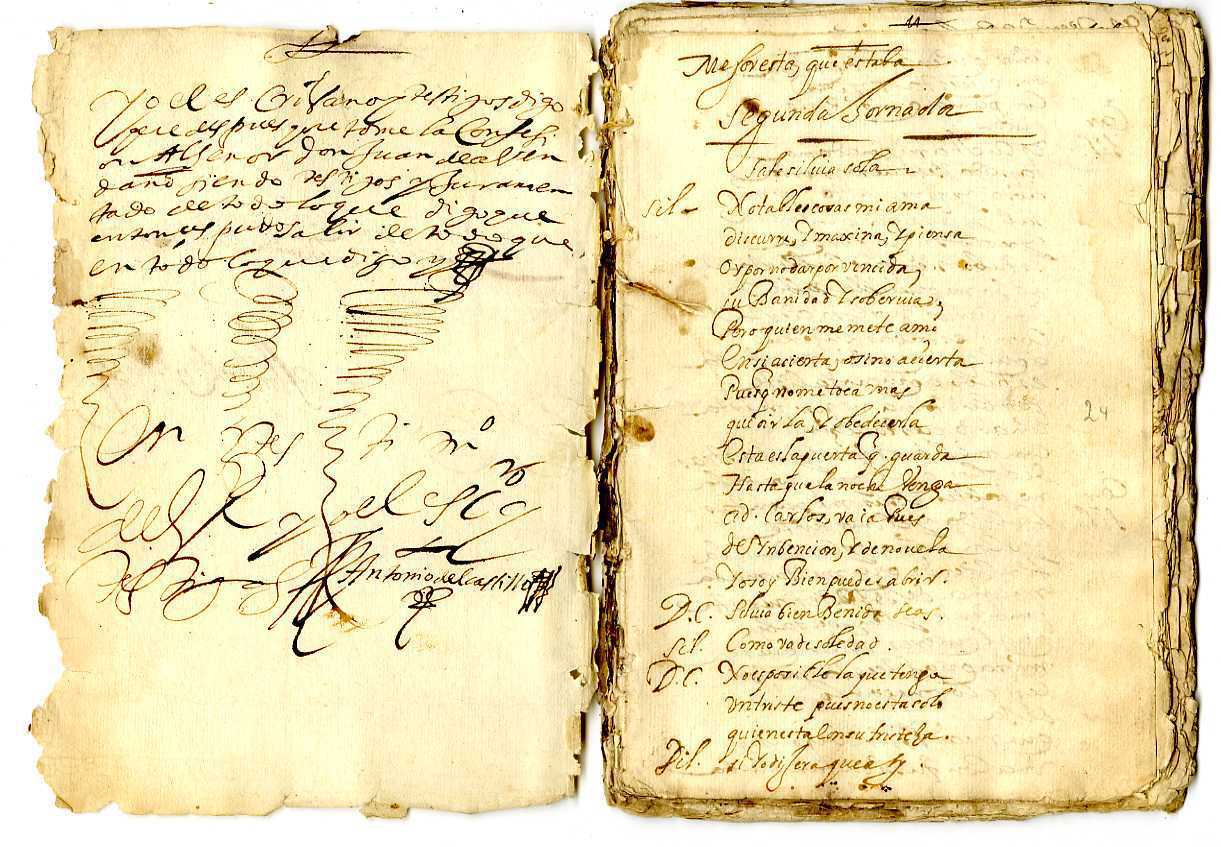 Yo el es Crivano y testigos digo
que despues que tome la Confes
on Al señor don Juan de
siendo testigos y Juramen
tado de todo lo que digo que
entonces puede salir de todo que
en todo lo que digo y
En Tes ti mº
del y o el
testigos Antonio del castillo
11
Me foresta, que estaba
Segunda Jornada
Sale silvia sola
Sil. Notables cosas mi ama
discurre, Y maxina, Y piensa
Oy por no dar por vencida,
su Banidad Y sobervia,
Pero quien me mete ami
En si acierta, o si no acierta
Pues q no me toca mas
que oirla, Y obedecerla
Esta es la puerta q. guarda
Hasta que la noche Venga
a d. Carlos, vaia Pues
de Ynbencion, Y de novela
Yo soy Bien puedes abrir.
D.C. Silvia bien Benida seas.
Sil. Como va de soledad.
D.C. No es posible la que tenga
Un triste pues no esta solo
quien esta Con su tristeza.
Sil. si Yo dijera que
24